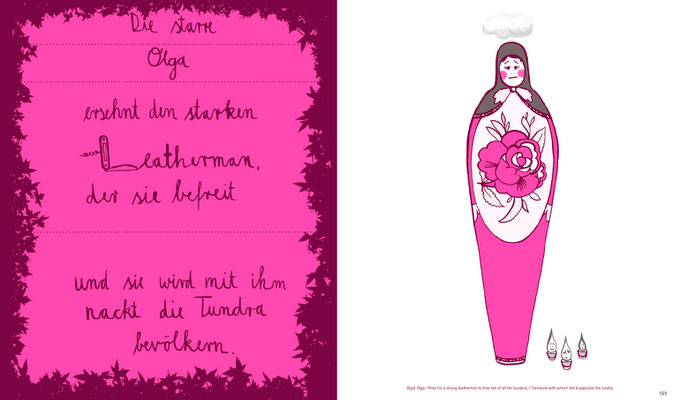 Die starre
Olga
ersehnt den starken
Leatherman,
der sie befreit
und sie wird mit ihm
nackt die Tundra
bevölkern.
Rigid Olga / Pines for a strong leatherman to free her of all her burdens, / Someone with whom she'd populate the tundra.
169